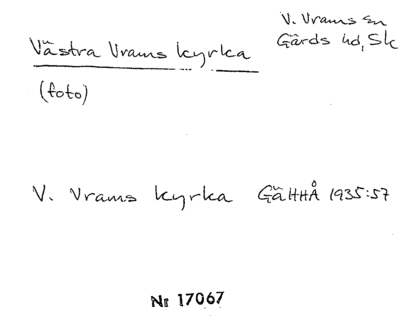 V. Vrams sn
Gärds hd, Sk
Västra Vrams kyrka
(foto)
V. Vrams kyrka GäHHÅ 1935:57
Nr 17067